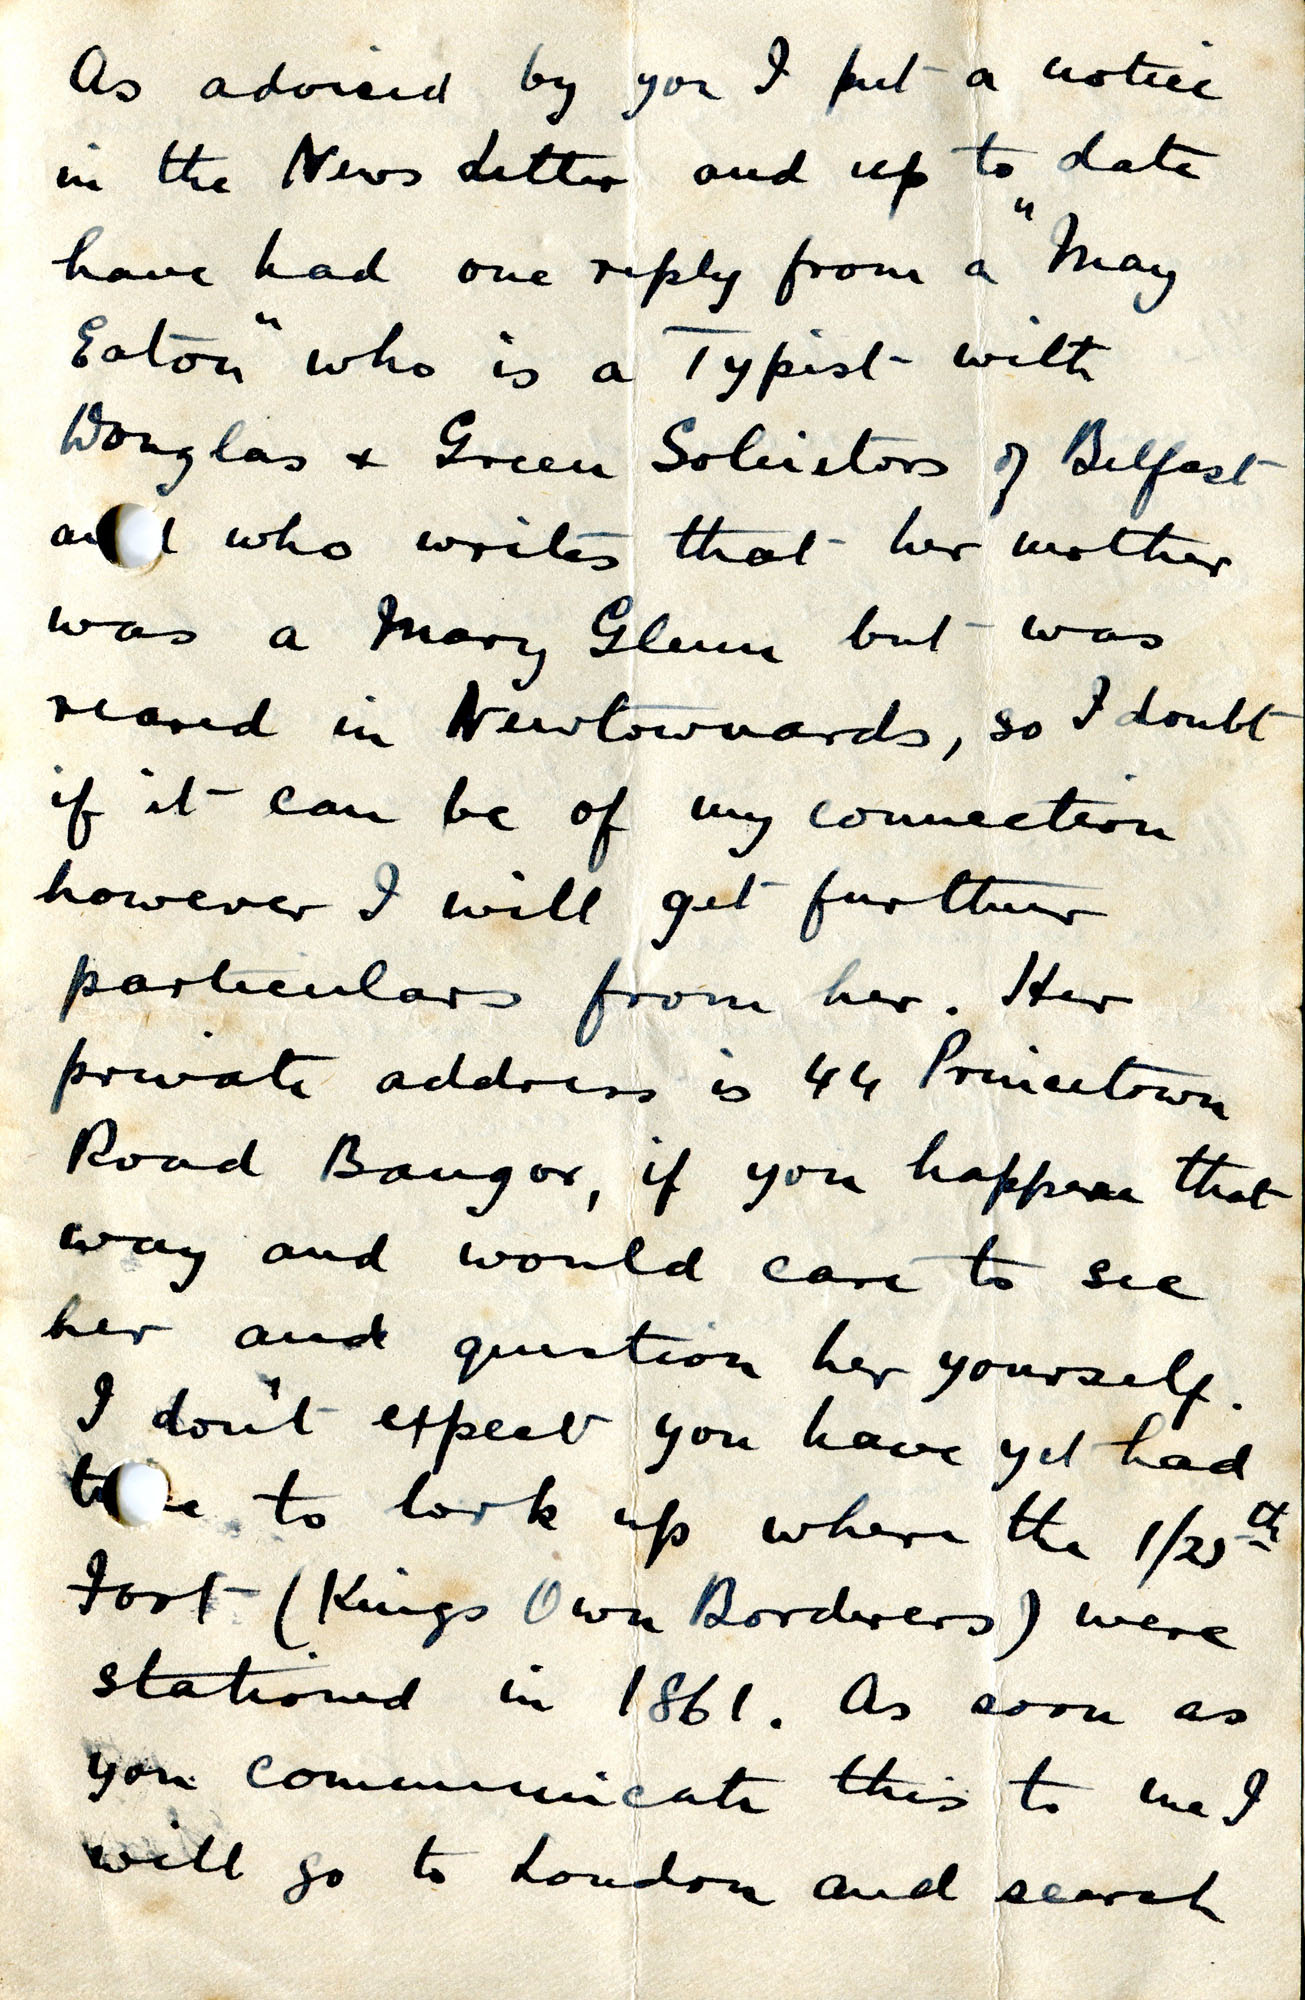 As advised by you I put a notice
in the News Letter and up to date
have had one reply from a "May
Eaton" who is a Typist with
Douglas & Green Solicitors of Belfast
and who writes that her mother
was a Mary Glenn but was
reared in Newtownards, so I doubt
if it can be of my connection
however I will get further
particulars from her. Her
private address is 44 Princetown
Road Bangor, if you happen that
way and would care to see
her and question her yourself.
I don't expect you have yet had
time to look up where the 1/25th
Foot (Kings Own Borderers) were
stationed in 1861. As soon as
you communicate this to me I
will go to London and search